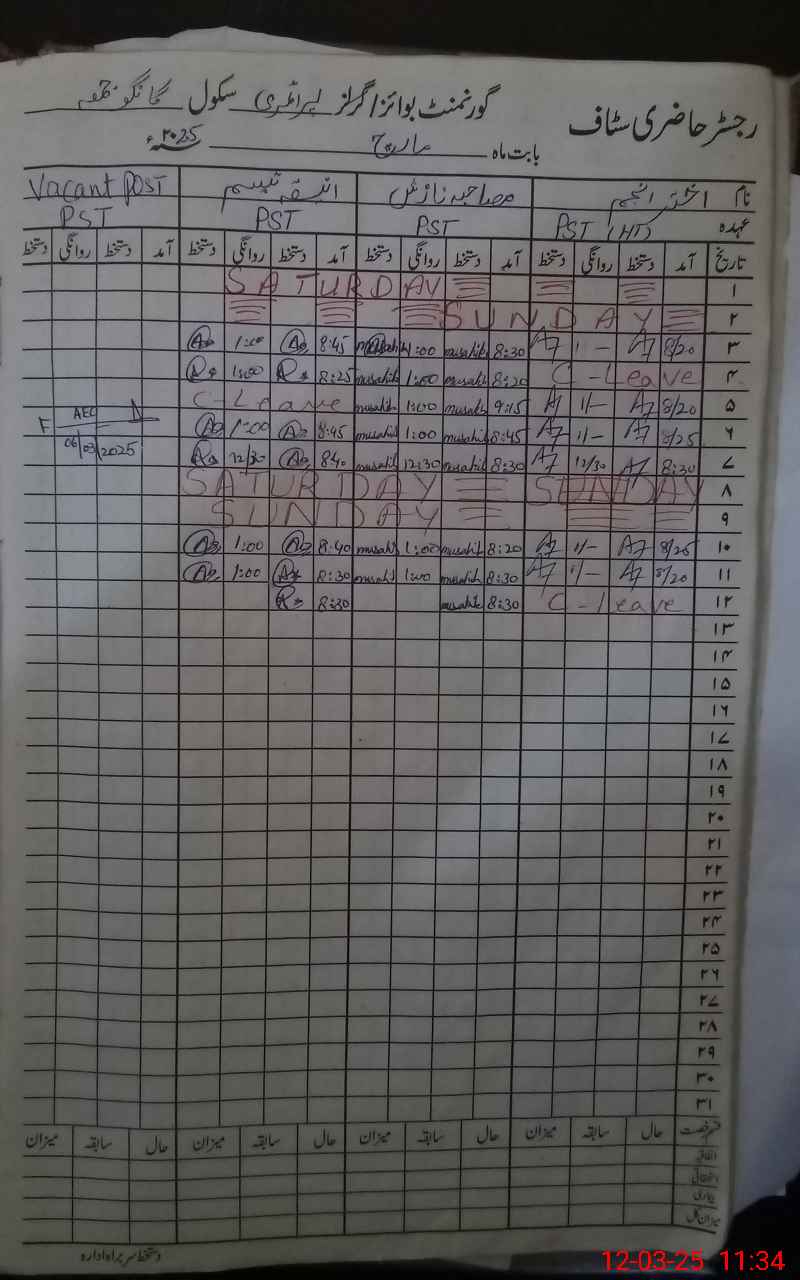 رجسٹر حاضری سٹاف گورنمنٹ بوائز/گرلز پرائمری سکول
بابت ماہ مارچ ۲۰25ء
نام اختر انجم مصاحبہ نازش انیقہ تبسم Vacant Post
عہدہ PST (HT) PST PST PST
تاریخ آمد دستخط روانگی دستخط آمد دستخط روانگی دستخط آمد دستخط روانگی دستخط آمد دستخط روانگی دستخط
۱ SATURDAY
۲ SUNDAY
۳ 8/20 1/- 8:30 musahib 1:00 8:45 1:00
۴ C-Leave 8:20 musahib 1:00 musahib 8:25 1:00
۵ 8/20 1/- 9:15 musahib 1:00 musahib C-Leave
۶ 8/25 1/- 8:45 musahib 1:00 musahib 8:45 1:00
AEO
06/03/2025
۷ 8:30 12/30 8:30 musahib 12:30 musahib 8:40 12/30
۸ SATURDAY SUNDAY
۹ SUNDAY
۱۰ 8/25 1/- 8:20 musahib 1:00 musahib 8:40 1:00
۱۱ 8/20 1/- 8:30 musahib 1:00 musahib 8:30 1:00
۱۲ C-Leave 8:30 musahib 8:30
۱۳
۱۴
۱۵
۱۶
۱۷
۱۸
۱۹
۲۰
۲۱
۲۲
۲۳
۲۴
۲۵
۲۶
۲۷
۲۸
۲۹
۳۰
۳۱
قسم رخصت حال سابقہ میزان حال سابقہ میزان حال سابقہ میزان حال سابقہ میزان
اتفاقی
استحقاقی
بیماری
میزان کل
دستخط سربراہ ادارہ
12-03-25 11:34